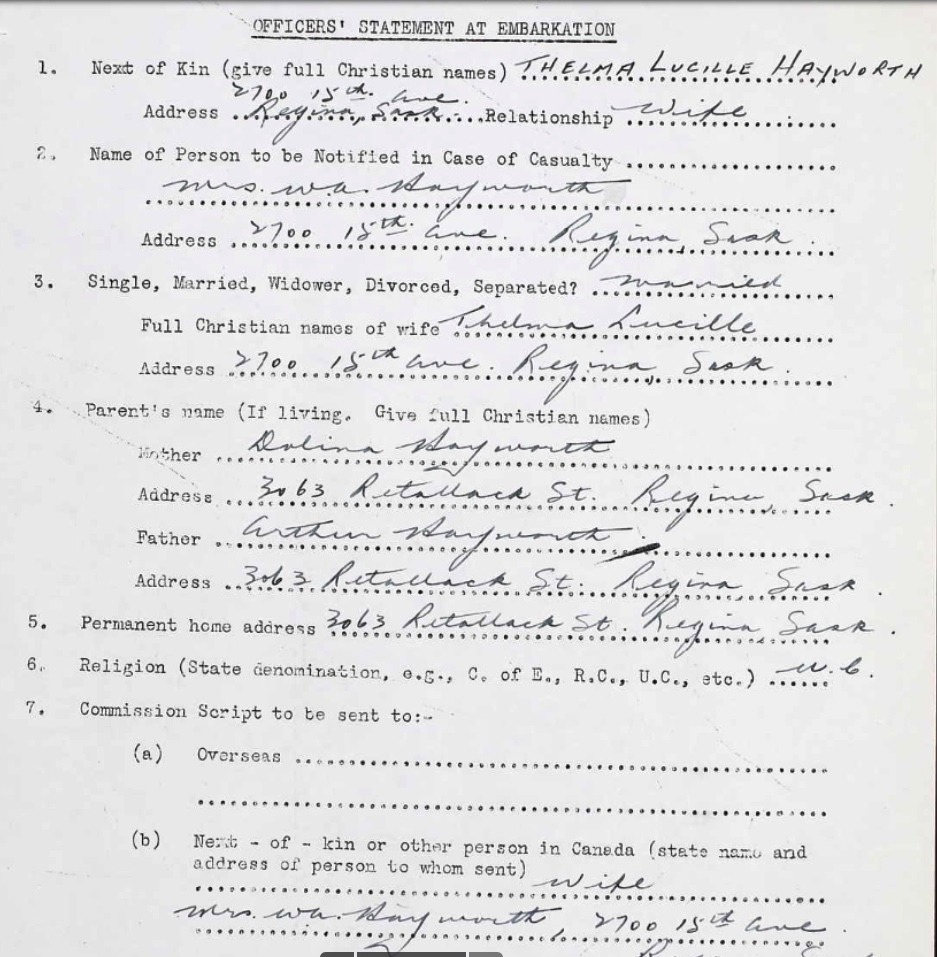 OFFICERS' STATEMENT AT EMBARKATION
1. Next of Kin (give full Christian names) THELMA LUCILLE HAYWORTH
2700 15th. Ave.
Address Regina, Sask. Relationship Wife
2. Name of Person to be Notified in Case of Casualty
Mrs. W.A. Hayworth
Address 2700 15th. Ave. Regina, Sask.
3. Single, Married, Widower, Divorced, Separated? Married
Full Christian names of wife Thelma Lucille
Address 2700 15th Ave. Regina, Sask.
4. Parent's name (If living. Give full Christian names)
Mother Dolina Hayworth
Address 3063 Retallack St. Regina, Sask.
Father Arthur Hayworth.
Address 3063 Retallack St. Regina Sask.
5. Permanent home address 3063 Retallack St. Regina Sask.
6. Religion (State denomination, e.g., C. of E., R.C., U.C., etc.) U.C.
7. Commission Script to be sent to:-
(a) Overseas
(b) Next - of - kin or other person in Canada (state name and
address of person to whom sent)
Wife
Mrs. W.A. Hayworth, 2700 15th Ave.